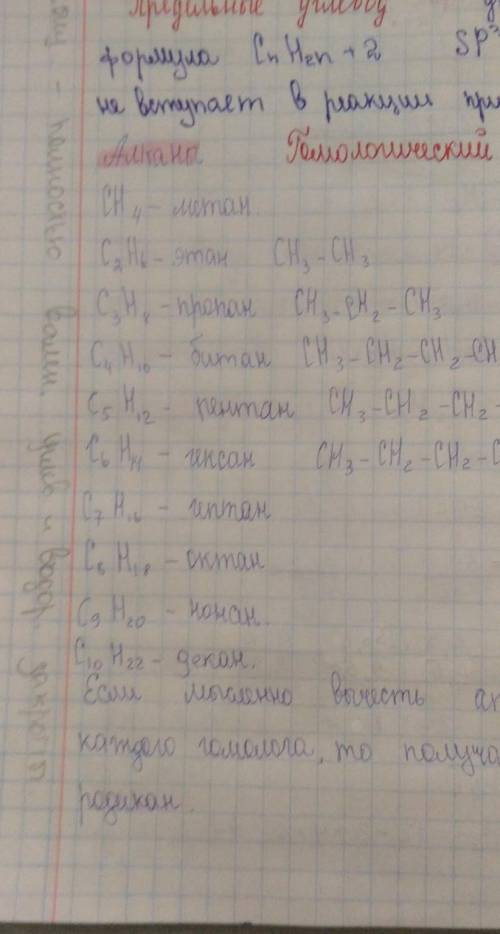 Предельные углевод
формула CnH2n+2 SP3
не вступает в реакции при
Алканы Гомологический
CH4 - метан.
C2H6 - этан CH3-CH3
C3H8 - пропан CH3-CH2-CH3
C4H10 - битан CH3-CH2-CH2-CH
C5H12 - пентан CH3-CH2-CH2-
C6H14 - гиксан CH3-CH2-CH2-C
C7H16 - гиптан
C8H18 - октан
C9H20 - нонан.
C10H22 - декан.
Если мысленно вычесть ат
каждого гомолога, то получа
радикан.
полностью вален. углев и водор.